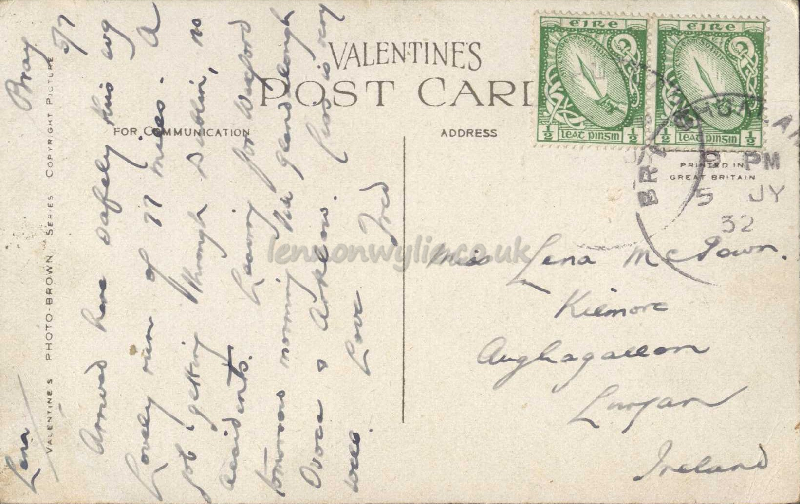 VALENTINE'S
POST CARD
FOR COMMUNICATION
ADDRESS
PRINTED IN
GREAT BRITAIN
VALENTINE'S PHOTO-BROWN SERIES COPYRIGHT PICTURE
éire
½ leat pinsin ½
éire
½ leat pinsin ½
BRI
PM
5 JY
32
Bray
5/7
Lena
Arrived here safely this evg
Lovely run of 77 miles. A
job getting through Dublin, no
accidents. Leaving for Wexford
tomorrow morning via Glendalough
Ovoca & Arklow. Ford is very
well. Love Fred
Miss Lena McGown.
Kilmore
Aughagallon
Lurgan
Ireland
lennonwylie.co.uk